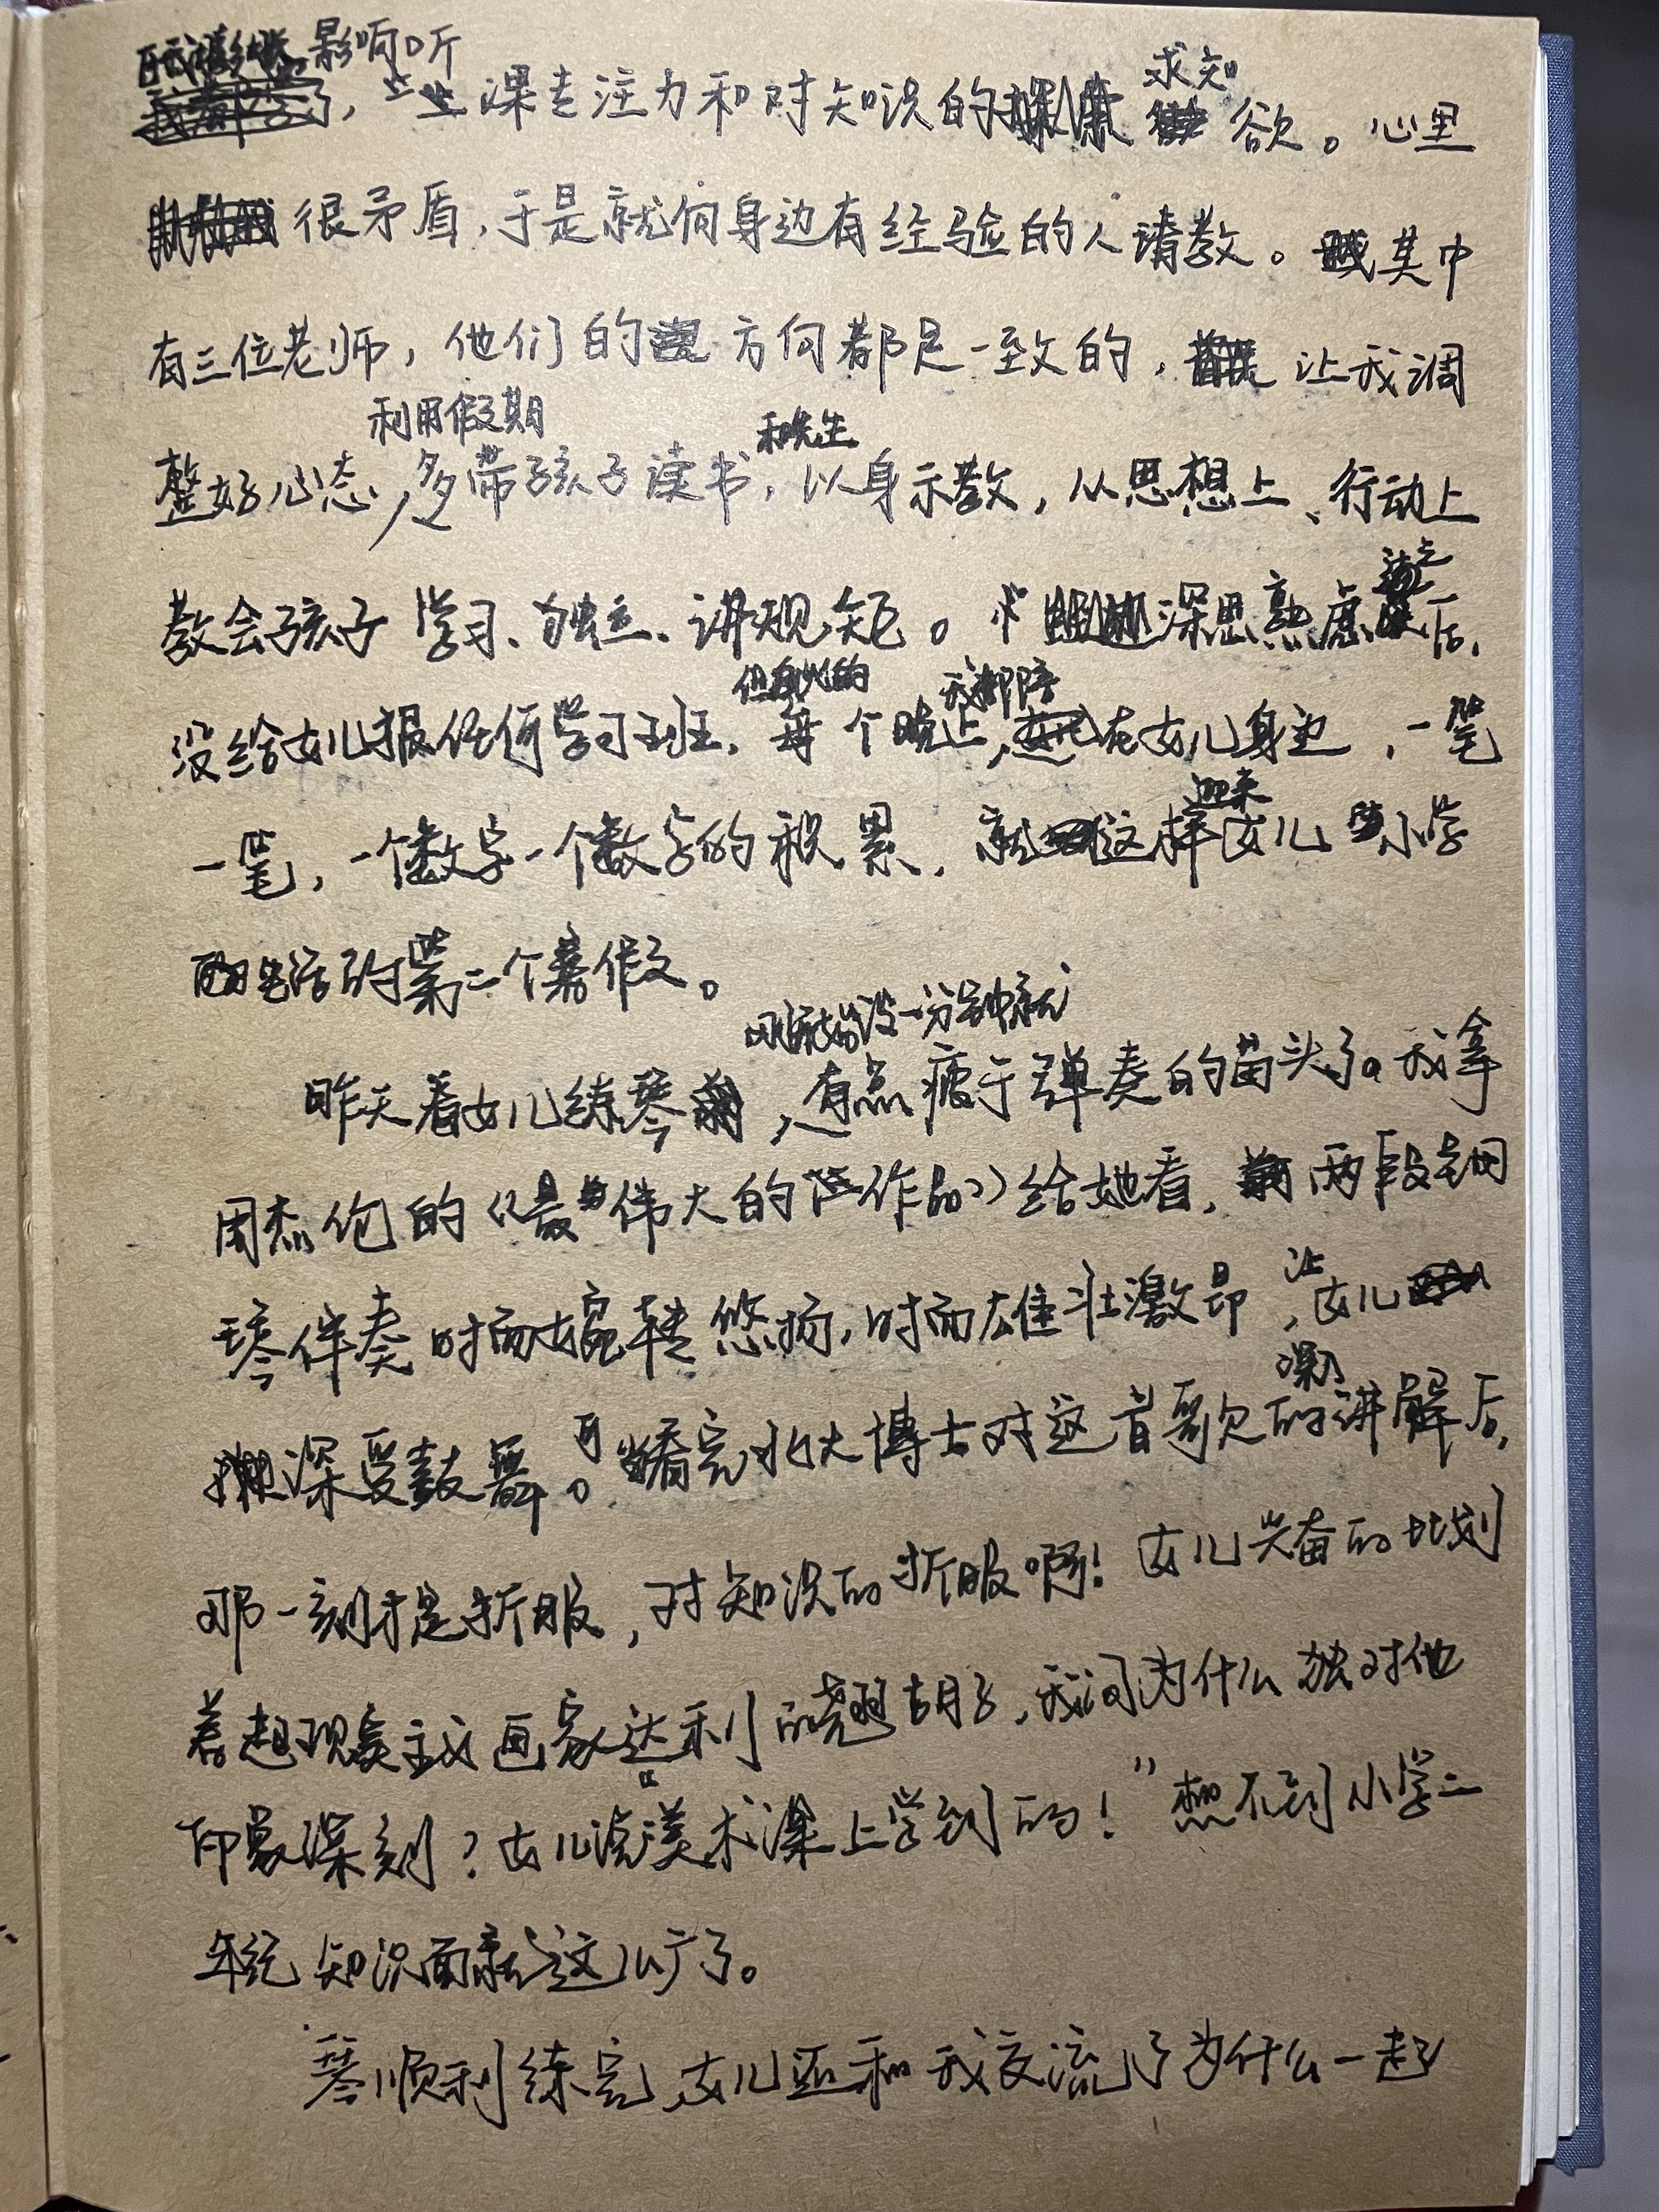 影响听
课专注力和对知识的求知欲。心里
很矛盾,于是就向身边有经验的人请教。其中
有三位老师,他们的方向都是一致的,让我调
整好心态,利用假期多带孩子读书,和先生以身示教,从思想上、行动上
教会孩子学习、独立、讲规矩。深思熟虑之后,
没给女儿报任何学习班,每个晚上,我都陪在女儿身边,一笔
一笔,一个数字一个数字的积累,就这样女儿迎来小学
生活的第二个暑假。
昨天看女儿练琴,没一分钟就有点疲于弹奏的苗头了。我拿
周杰伦的《最伟大的作品》给她看,两段钢
琴伴奏时而婉转悠扬,时而雄壮激昂,让女儿
深受鼓舞。再看完北大博士对这首歌的深入讲解后,
那一刻才是折服,对知识的折服啊!女儿兴奋的比划
着超现象主义画家达利的翘胡子,我问为什么独对他
印象深刻?女儿说“美术课上学到的!”想不到小学二
年级知识面就这么广了。
琴顺利练完,女儿还和我交流了为什么一起